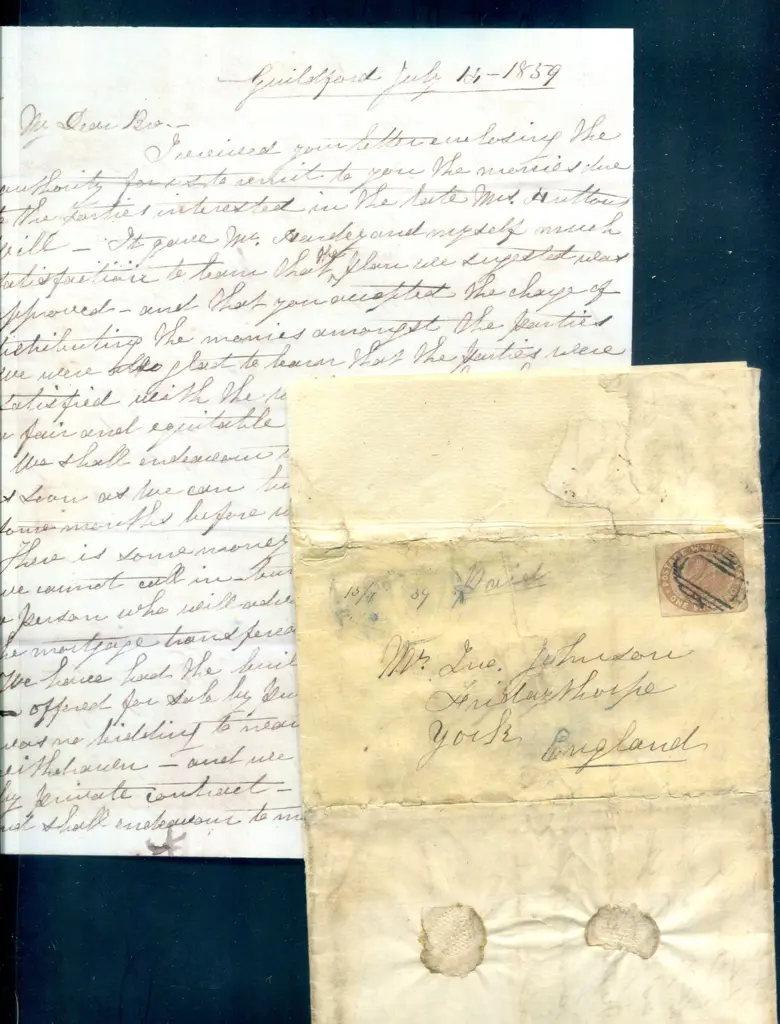 Guildford July 14 - 1859
My Dear Bro. -
I received your letter enclosing the
authority for us to remit to you the monies due
the Parties interested in the late Mrs. Huttons
Will - It gave Mr. Hardey and myself much
satisfaction to learn that the Plan we sugested was
approved - and that you accepted the charge of
distributing the monies amongst the Parties
we were also glad to learn that the Parties were
satisfied with the
fair and equitable
We shall endeavour
soon as we can
some months before
There is some money
we cannot call in
person who will
the mortgage
We have had the
- offered for sale by
was no bidding
withdrawn - and we
by private contract -
shall endeavour to
POSTAGE
15/7 59 Paid
Mr. Jno. Johnson
Fridaythorpe
York
England